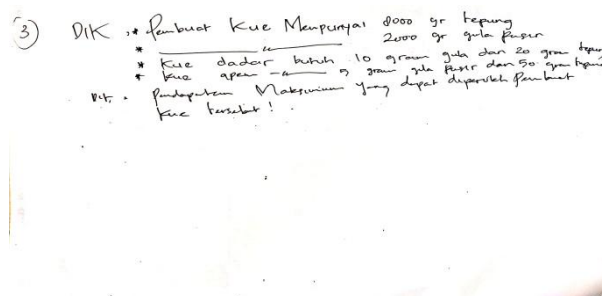 ③ DIK : * Pembuat Kue Mempunyai 8000 gr tepung
* 2000 gr gula pasir
* Kue dadar butuh 10 gram gula dan 20 gram tepung
* kue apem 5 gram gula pasir dan 50 gram tepung
Dit, . Pendapatan Maksimum yang dapat diperoleh Pembuat
Kue tersebut !